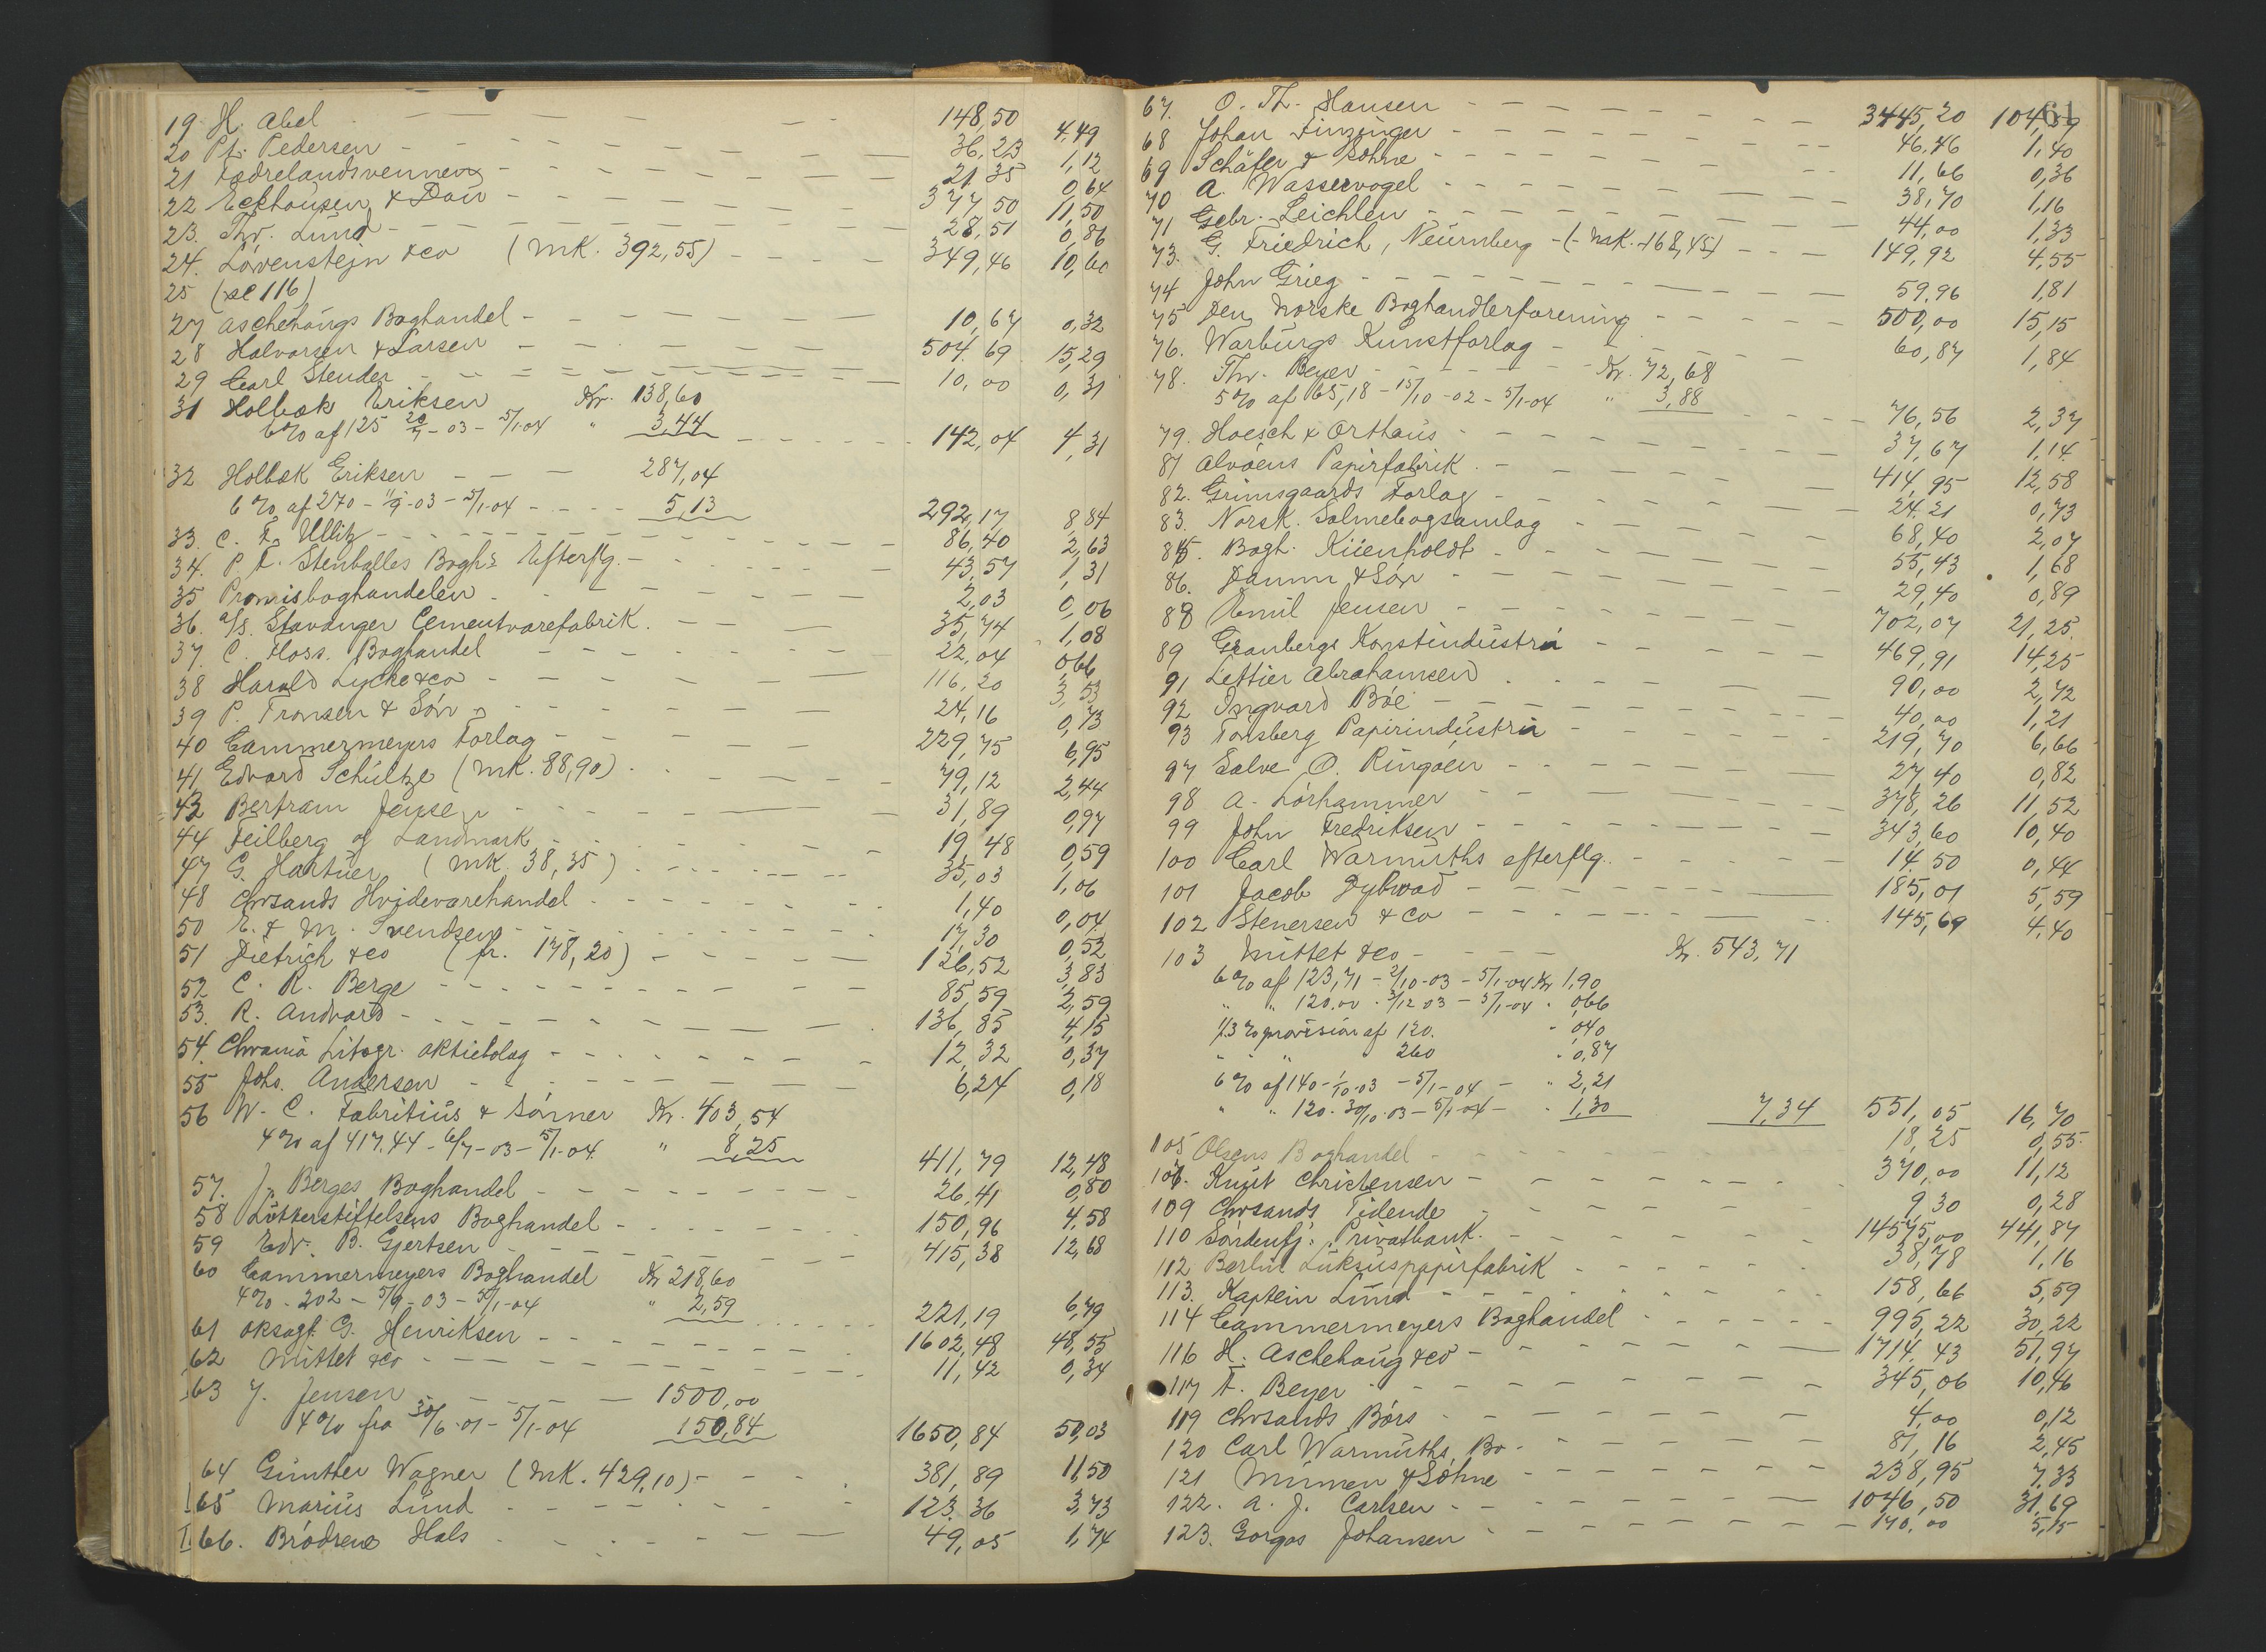 19 H. Abel 148,50 4,49
20 Pt. Pedersen 36,23 1,12
21 Fædrelandsvennen 21,35 0,64
22 Eckhausen & Dan 377,50 11,50
23. Thv. Lund 28,51 0,86
24. Lövenstejn & co (Mk. 392,55) 349,46 10,60
25 (se 116)
27 Aschehougs Boghandel 10,67 0,32
28 Halvorsen & Larsen 504,69 15,29
29 Carl Stender 10,00 0,31
31 Holbæk Eriksen Kr. 138,60
6% af 125 20/7-03 - 5/1-04 " 3,44 142,04 4,31
32 Holbæk Eriksen 287,04
6% af 270 - 11/9-03 - 5/1-04 5,13 292,17 8,84
33. C. F. Ullitz 86,40 2,63
34. P. T. Stenballes Bogh. Efterflg. 43,57 1,31
35 Promisboghandelen 2,03 0,06
36. A/S. Stavanger Cementvarefabrik. 35,74 1,08
37. C. Floss. Boghandel 22,04 0,66
38 Harald Lycke & co 116,20 3,53
39 P. Tronsen & Sön 24,16 0,73
40 Cammermeyers Forlag 229,75 6,95
41 Edvard Schultze (Mk. 88,90) 79,12 2,44
42 Bertram Jensen 31,89 0,97
44 Feilberg og Landmark 19,48 0,59
47 G. Hartuer (Mk. 38,35) 35,03 1,06
48 Chrsands Hvidevarehandel 1,40 0,04
50 E. & M. Svendsen 17,30 0,52
51 Dietrich & co (fr. 178,20) 126,52 3,83
52 C. R. Berge 85,59 2,59
53. R. Andvord 136,85 4,15
54. Chrania Litogr. Aktiebolag 12,32 0,37
55 Johs. Andersen 6,24 0,18
56 W. C. Fabritius & Sönner Kr. 403,54
4% af 417.44 - 6/7-03 - 5/1-04. " 8,25 411,79 12,48
57. J. Berges Boghandel 26,41 0,80
58 Lutherstiftelsens Boghandel 150,96 4,58
59 Edv. B. Gjertsen 415,38 12,68
60 Cammermeyers Boghandel Kr 218,60
4% - 202 - 5/9-03 - 5/1-04 " 2,59 221,19 6,79
61 Oksagf. G. Henriksen 1602,48 48,55
62 Mittet & co 11,42 0,34
63 J. Jensen 1500,00
4% fra 30/6-01 - 5/1-04 150,84 1650,84 50,03
64 Günther Wagner (Mk. 429,10) 381,89 11,50
65 Marius Lund 123,36 3,73
66. Brödrene Hals 49,05 1,74
61
67. O. Th. Hansen 3445,20 104,59
68 Johan Finzinger 46.46 1,40
69 Schäfer & Sohne 11,66 0,36
70 A. Wasservogel 38,70 1,16
71 Gebr. Leichlen 44,00 1,33
73. G. Friedrich, Neurnberg (Mk. 168,45) 149,92 4,55
74 John Grieg 59,96 1,81
75 Den norske Boghandlerforening 500,00 15,15
76. Warburgs Kunstforlag 60,87 1,84
78. Thv. Beyer Kr. 72,68
5% af 65,18 - 15/10-02 - 5/1-04 " 3,88 76,56 2,37
79. Hoesch & Orthaus 37,67 1,14
81 Alvöens Papirfabrik 414,95 12,58
82. Grimsgaards Forlag 24,21 0,73
83. Norsk. Salmebogsamlag 68,40 2,07
85. Bogh. Küenholdt 55,43 1,68
86. Damm & Sön 29,40 0,89
88 Emil Jensen 702,07 21,25
89 Granbergs Konstindustria 469,91 14,25
91 Lettier Abrahamsen 90,00 2,72
92 Ingvard Böe 40,00 1,21
93 Tönsberg Papirindustria 219,70 6,66
97 Salve O. Ringöen 27,40 0,82
98 A. Lörhammer 378,26 11,52
99 John Fredriksen 343,60 10,40
100 Carl Warmuths efterflg. 14,50 0,44
101 Jacob Dybwad 185,01 5,59
102 Stenersen & Co 145,69 4,40
103 Mittet & co Kr. 543,71
6% af 123,71 - 2/10-03 - 5/1-04 Kr 1,90
" " 120.00 - 3/12 03 - 5/1-04 " 0,66
1/3% provision af 120. " 0,40
" " " 260 " 0,87
6% af 140 - 1/10-03 - 5/1-04 " 2,21
" " 120. 30/10-03 - 5/1-04 " 1,30 7,34 551,05 16,70
105 Olsens Boghandel 18,25 0,55
106. Knut Christensen 370,00 11,12
109 Chrsands Tidende 9,30 0,28
110 Söndenfj. Privatbank. 14575,00 441,87
112 Berlin Luksuspapirfabrik 38,78 1,16
113. Kaptein Lund 158,66 5,59
114 Cammermeyers Boghandel 995,22 30,22
116 H. Aschehoug & co 1714,43 51,97
117 F. Beyer 345,06 10,46
119 Chrsands Börs 4,00 0,12
120 Carl Warmuths Bo 81,16 2,45
121 Mümen & Söhne 238,95 7,33
122. A. J. Carlsen 1046,50 31,69
123. Gorgas Johansen 170,00 5,15